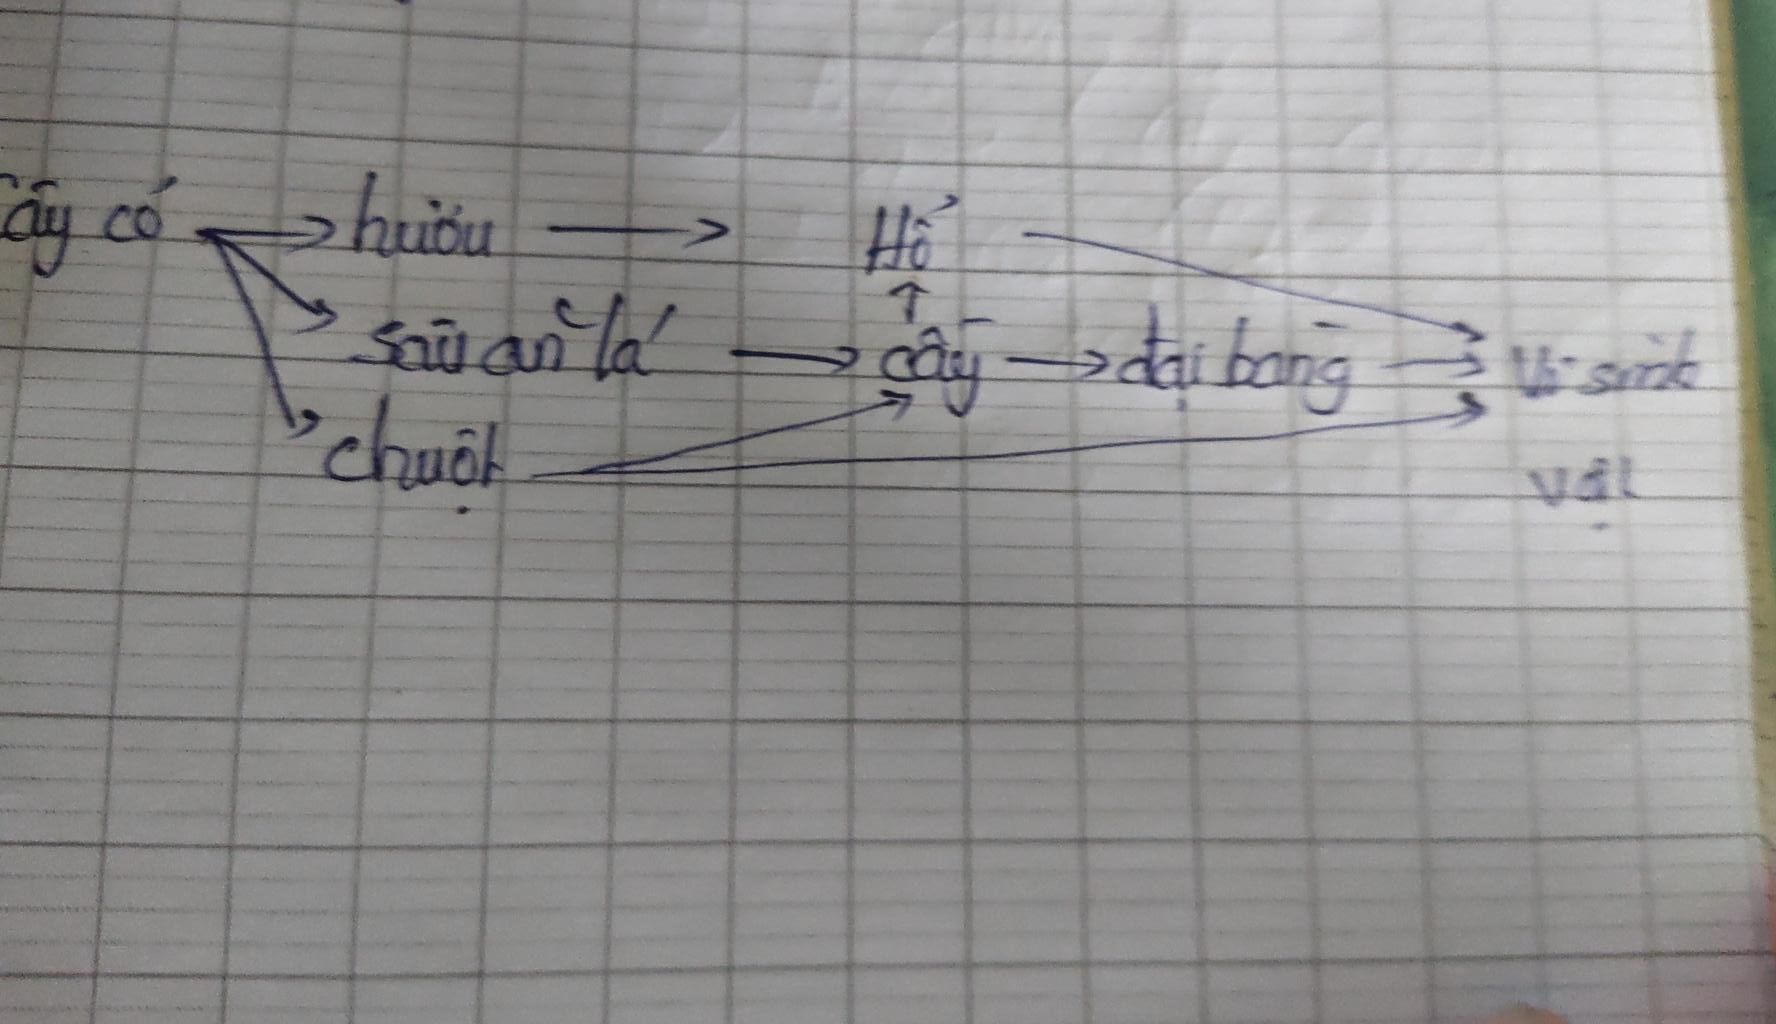 cây cỏ → hươu → Hổ
sâu ăn lá → cầy → đại bàng → Vi sinh
chuột
vật